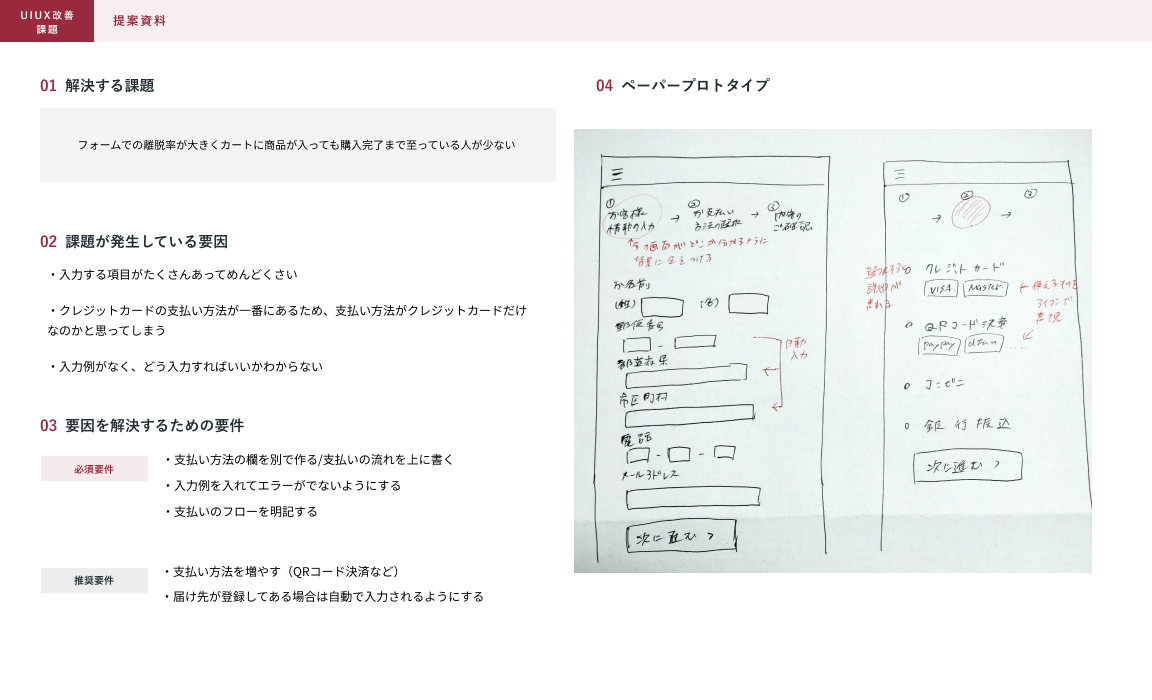 UIUX改善
課題
提案資料
01 解決する課題
フォームでの離脱率が大きくカートに商品が入っても購入完了まで至っている人が少ない
02 課題が発生している要因
・入力する項目がたくさんあってめんどくさい
・クレジットカードの支払い方法が一番にあるため、支払い方法がクレジットカードだけ
なのかと思ってしまう
・入力例がなく、どう入力すればいいかわからない
03 要因を解決するための要件
必須要件
・支払い方法の欄を別で作る/支払いの流れを上に書く
・入力例を入れてエラーがでないようにする
・支払いのフローを明記する
推奨要件
・支払い方法を増やす（QRコード決済など）
・届け先が登録してある場合は自動で入力されるようにする
04 ペーパープロトタイプ
① お客様
情報の入力
→
② お支払い
方法の選択
→
③ 内容の
ご確認
↑今の画面がどこか分かるように
背景に色をつける
お名前
(姓) (名)
郵便番号
-
自動
入力
都道府県
市区町村
電話
- -
メールアドレス
次に進む >
① → ② → ③
クレジットカード
VISA Master
← 使えるものを
アイコンで
表現
選択行に
詳細が
QRコード決済
paypay
コンビニ
銀行振込
次に進む >